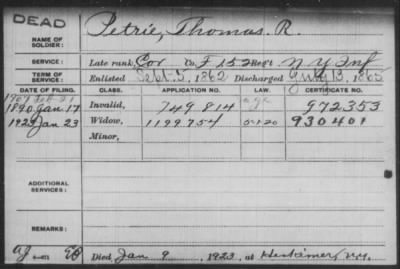 DEAD
NAME OF SOLDIER: Petrie, Thomas R.
SERVICE: Late rank, Cor Co. F 152 Reg't N Y Inf
TERM OF SERVICE: Enlisted Sept. 5, 1862 Discharged July 13, 1865
DATE OF FILING. CLASS. APPLICATION NO. LAW. CERTIFICATE NO.
1907 Feb 21 age
1890 Jan 17 Invalid, 749814 972353
1923 Jan 23 Widow, 1199754 5-1-20 930401
Minor,
ADDITIONAL SERVICES:
REMARKS:
Died Jan 9, 1923, at Herkimer, N.Y.